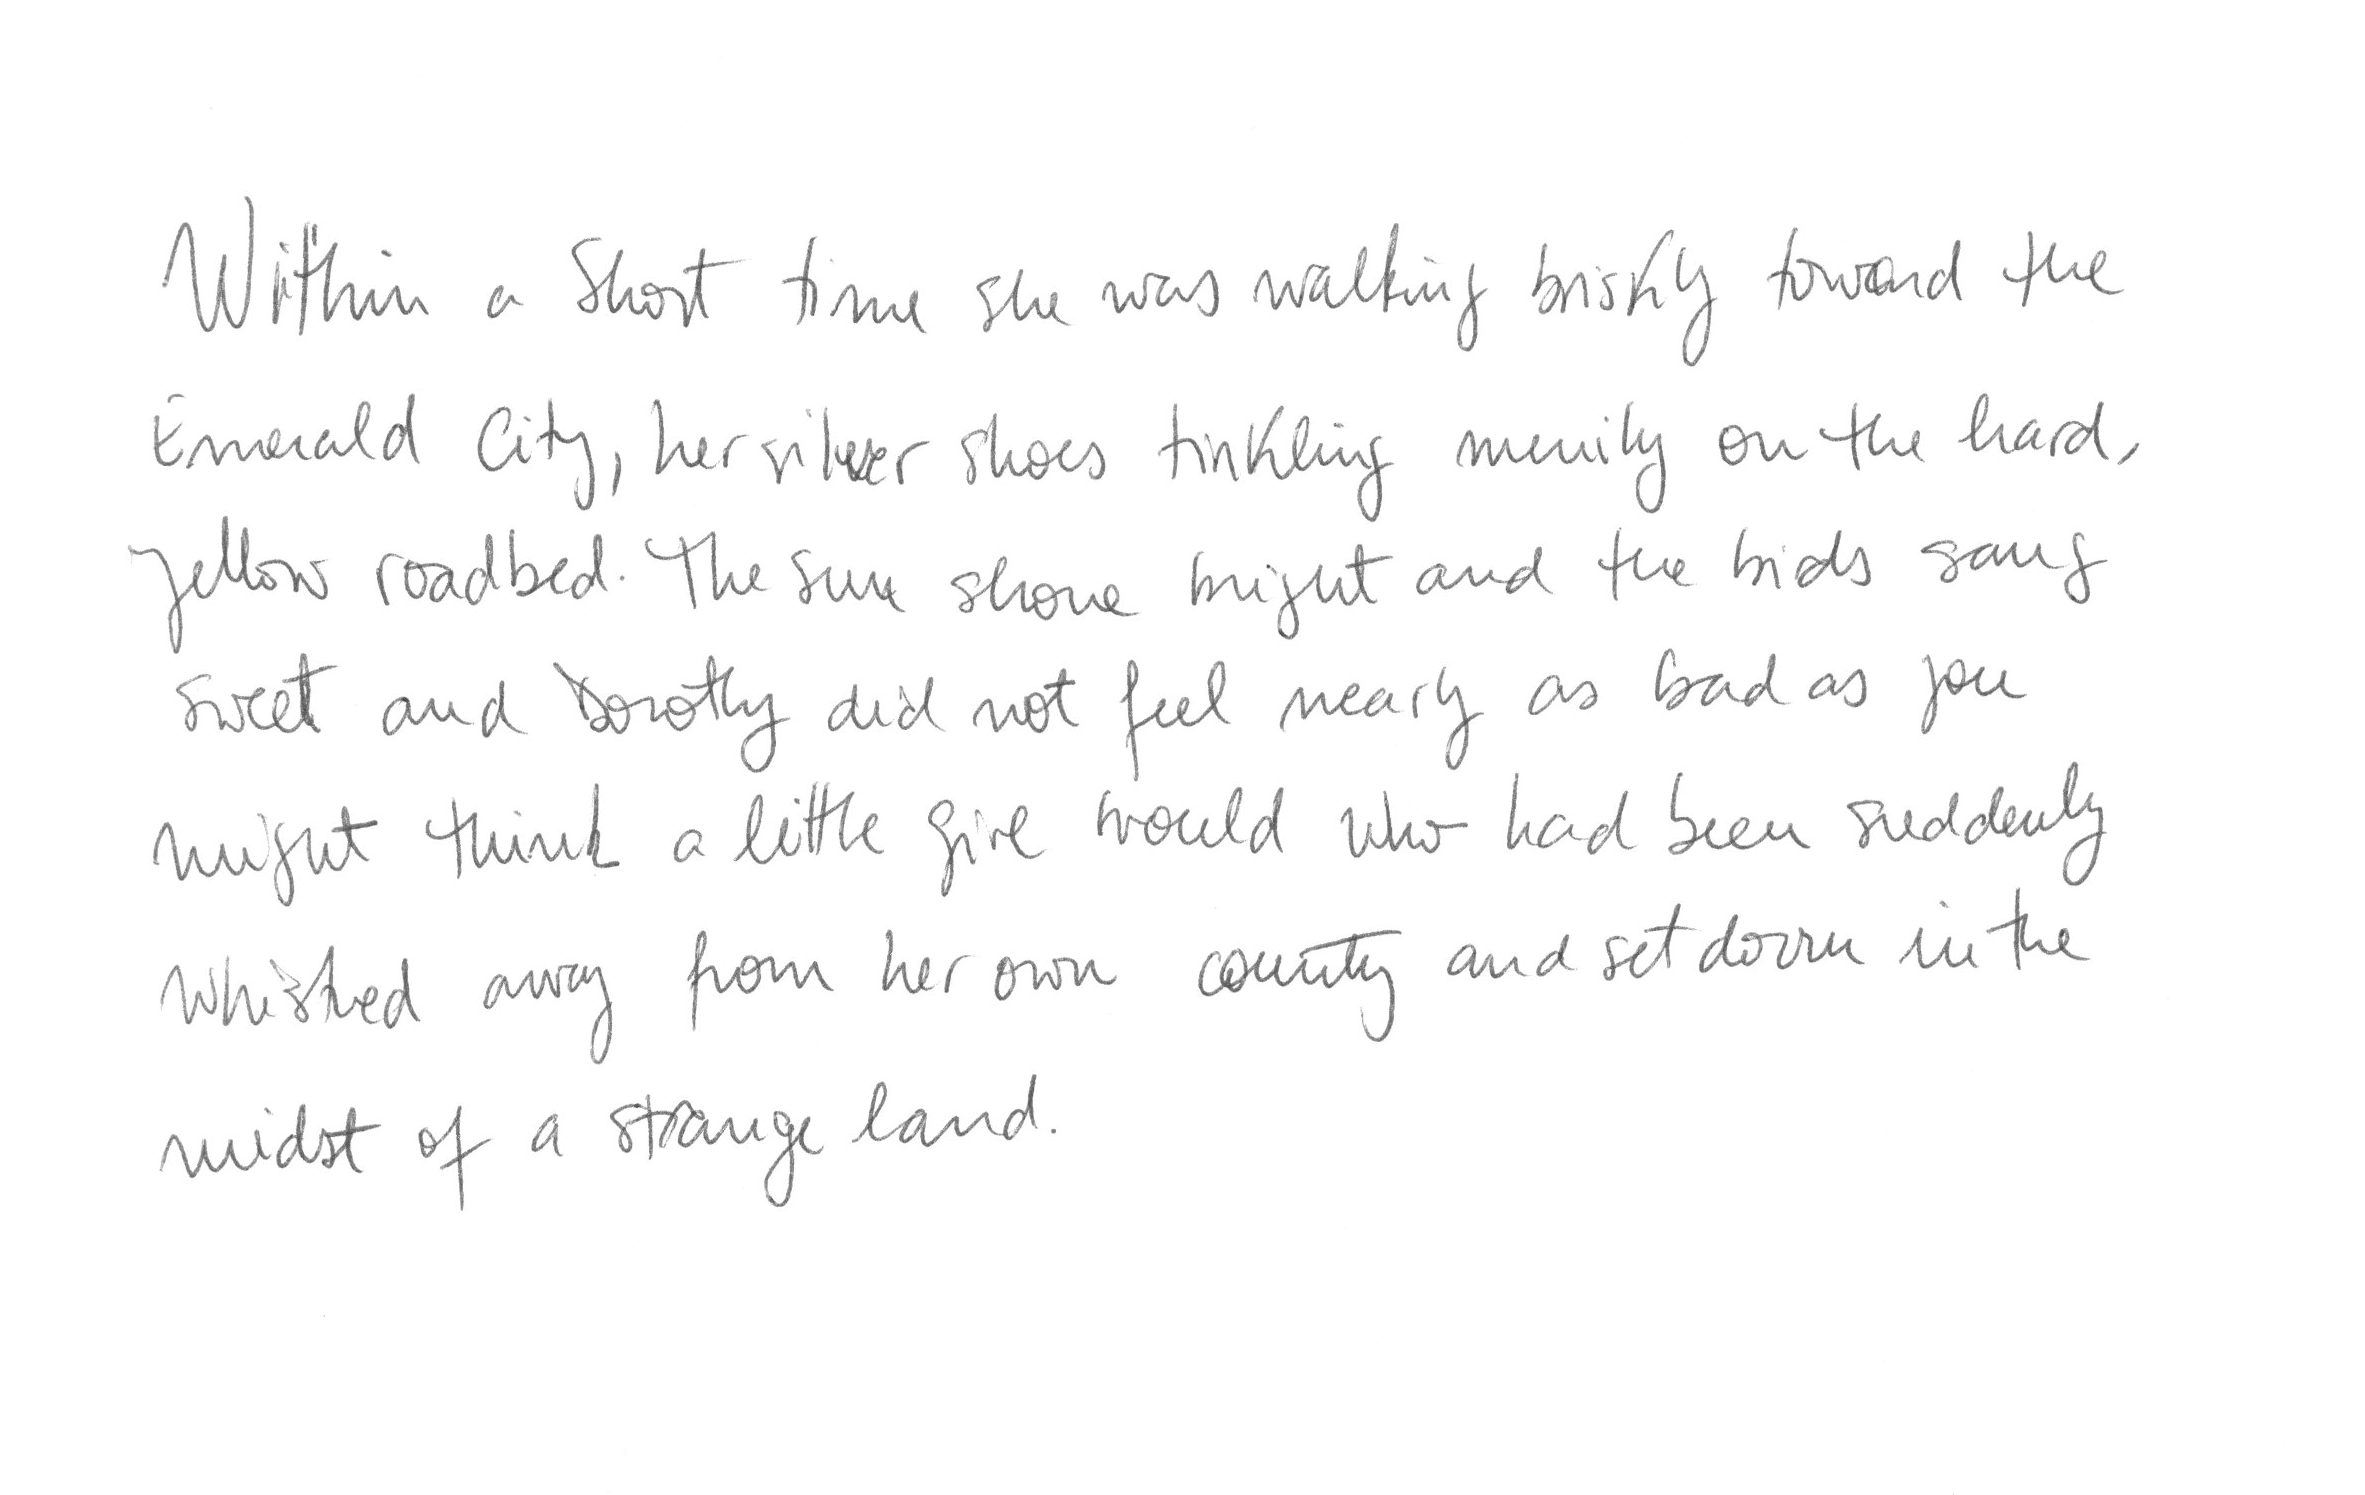 Within a Short time she was walking briskly toward the
Emerald City, her silver shoes tinkling merrily on the hard,
yellow roadbed. The sun shone bright and the birds sang
sweet and Dorothy did not feel nearly as bad as you
might think a little girl would who had been suddenly
whisked away from her own county and set down in the
midst of a strange land.